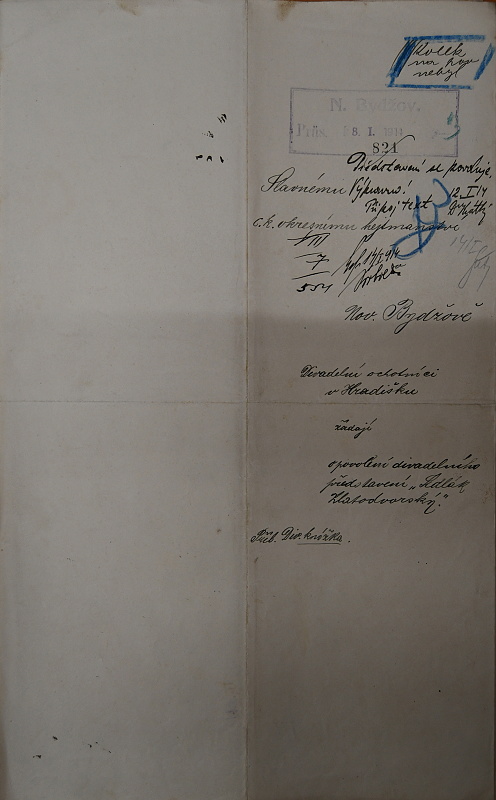 Kolek
na pov
nebyl
N. Bydžov.
Präs. 8. I. 1914
821
Představení se povoluje,
Slavnému Výpravna! 12/I 14
Připoj text
c.k. okresnímu hejtmanství
VIII
7
554
Nov. Bydžově
Divadelní ochotníci
v Hradišku
žádají
o povolení divadelního
představení „Sedlák
Zlatodvorský".
Příl. Div. knížka.